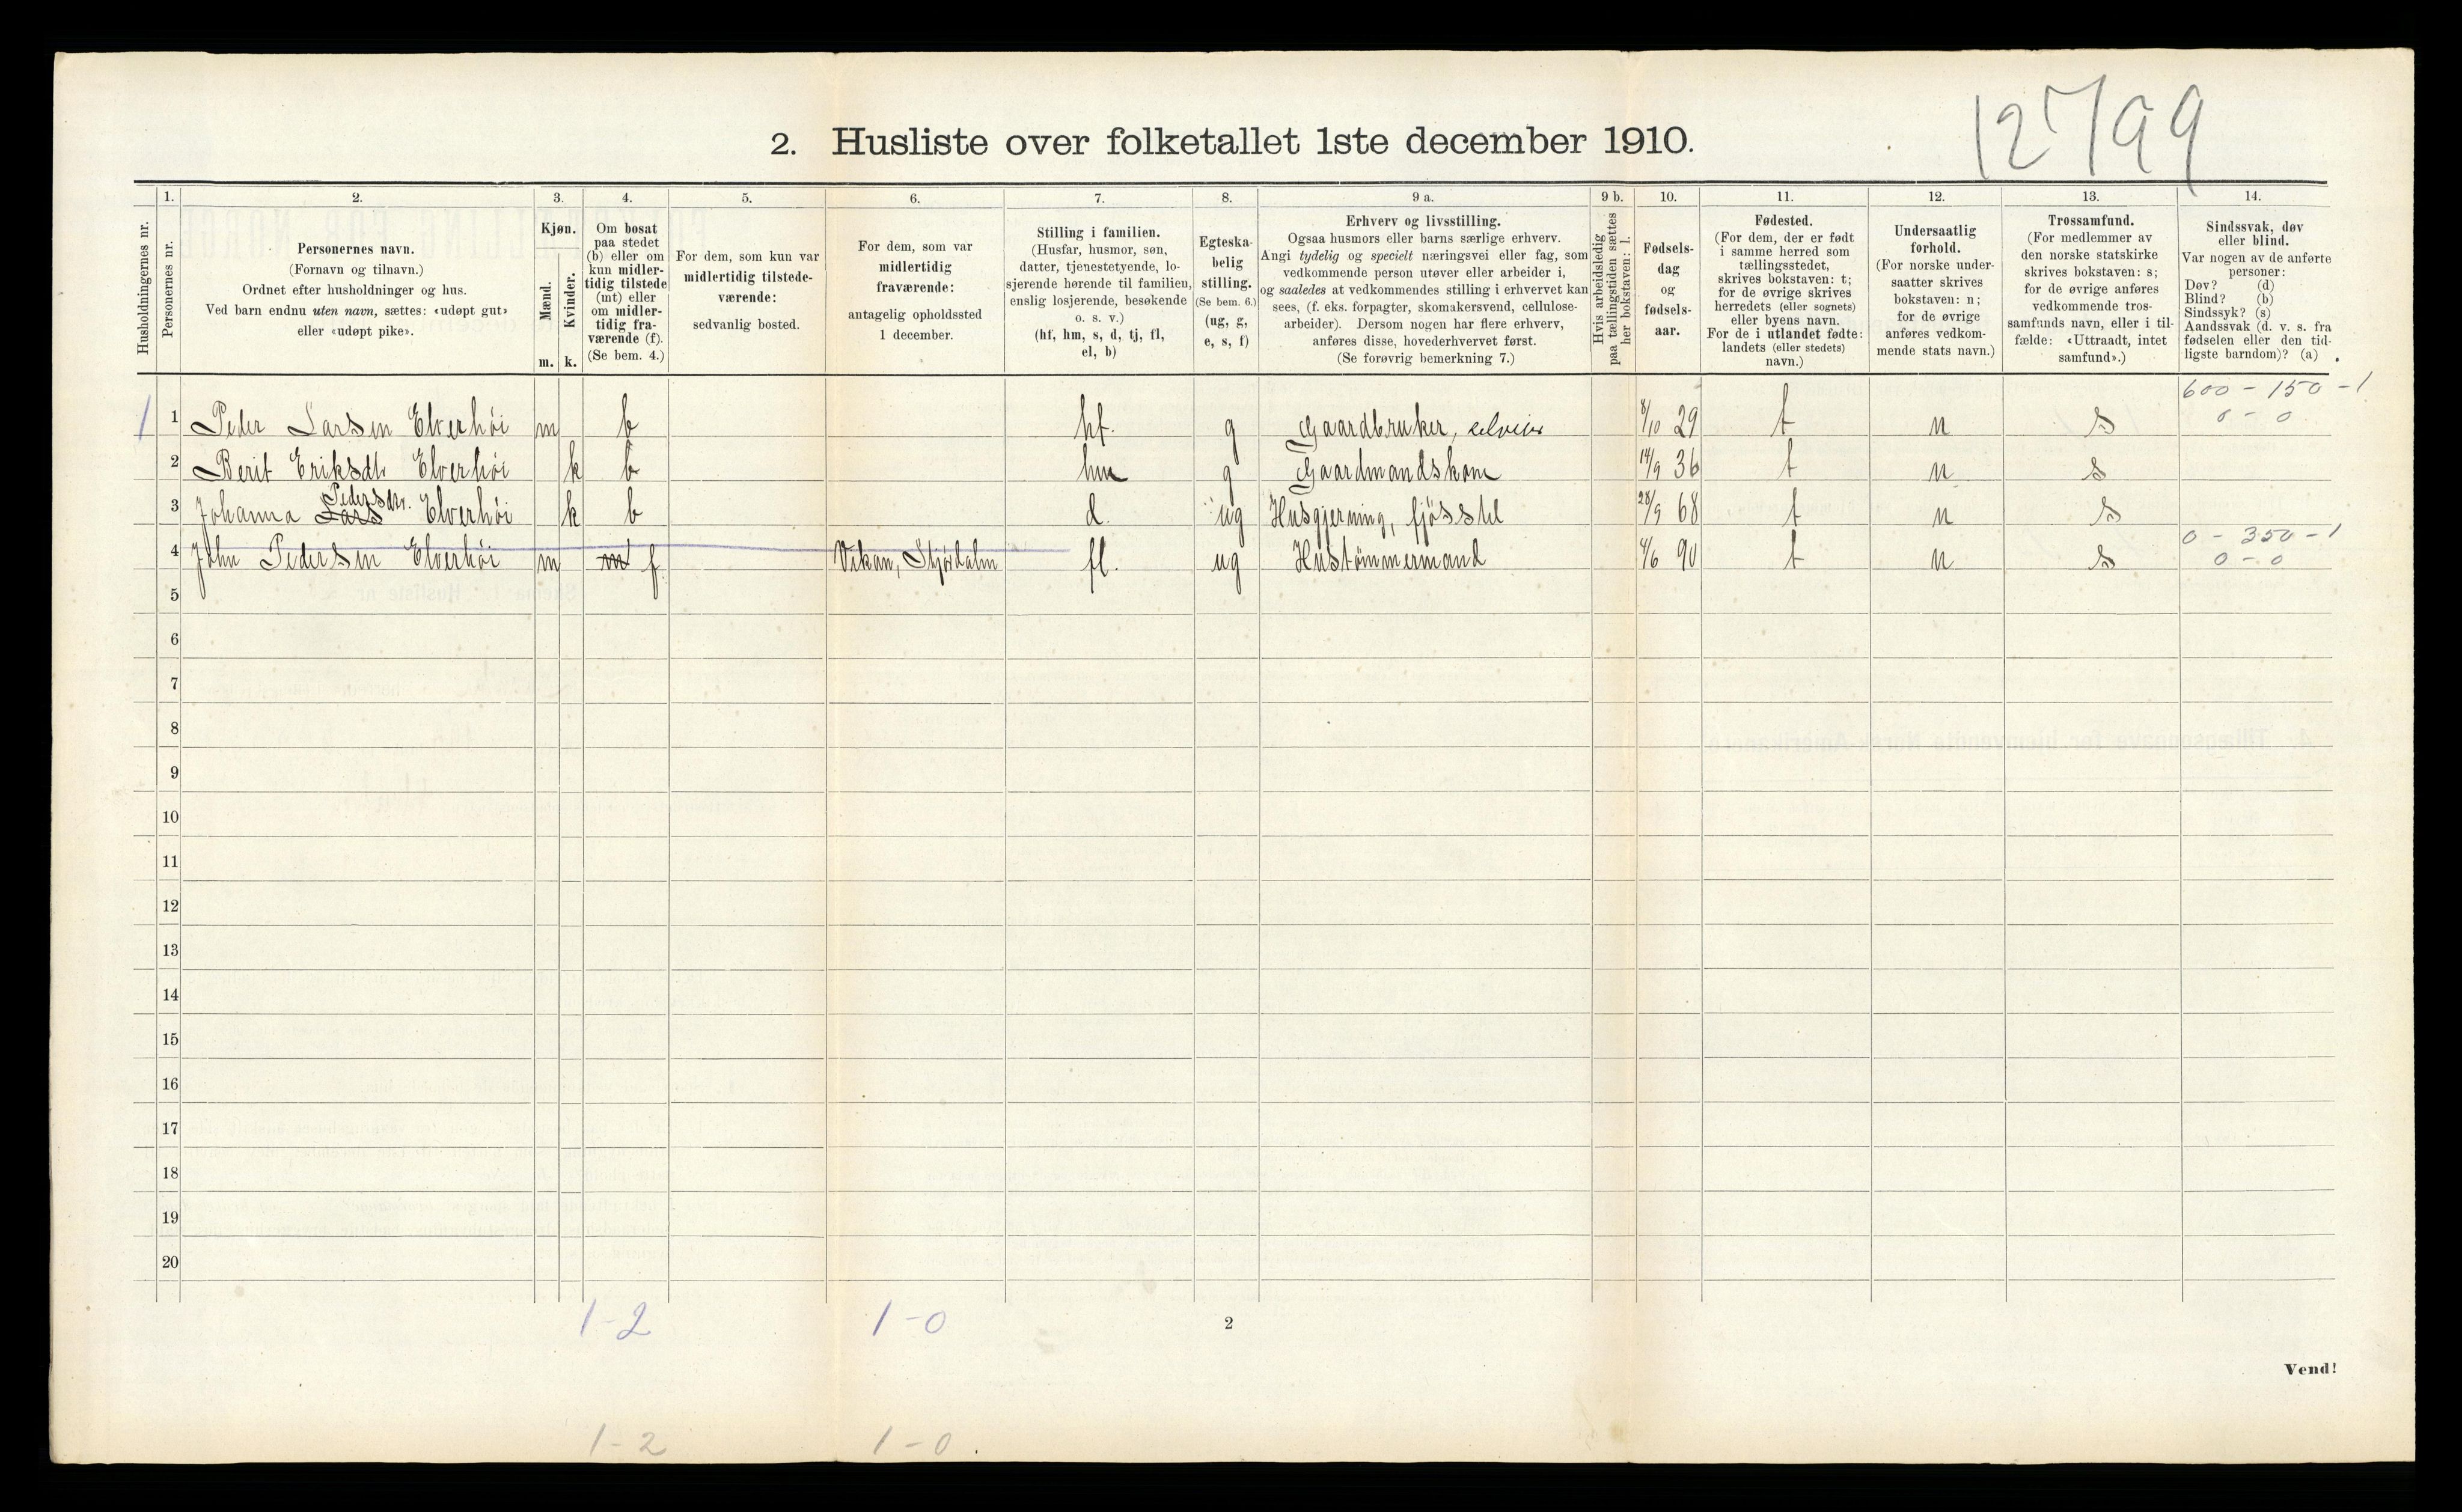 12799
2. Husliste over folketallet 1ste december 1910.
1. 2. 3. 4. 5. 6. 7. 8. 9 a. 9 b. 10. 11. 12. 13. 14.
Husholdningernes nr.
Personernes nr.
Personernes navn.
(Fornavn og tilnavn.)
Ordnet efter husholdninger og hus.
Ved barn endnu uten navn, sættes: «udøpt gut»
eller «udøpt pike».
Kjøn.
Mænd.
Kvinder.
m. k.
Om bosat
paa stedet
(b) eller om
kun midler-
tidig tilstede
(mt) eller
om midler-
tidig fra-
værende (f).
(Se bem. 4.)
For dem, som kun var
midlertidig tilstede-
værende:
sedvanlig bosted.
For dem, som var
midlertidig
fraværende:
antagelig opholdssted
1 december.
Stilling i familien.
(Husfar, husmor, søn,
datter, tjenestetyende, lo-
sjerende hørende til familien,
enslig losjerende, besøkende
o. s. v.)
(hf, hm, s, d, tj, fl,
el, b)
Egteska-
belig
stilling.
(Se bem. 6.)
(ug, g,
e, s, f)
Erhverv og livsstilling.
Ogsaa husmors eller barns særlige erhverv.
Angi tydelig og specielt næringsvei eller fag, som
vedkommende person utøver eller arbeider i,
og saaledes at vedkommendes stilling i erhvervet kan
sees, (f. eks. forpagter, skomakersvend, cellulose-
arbeider). Dersom nogen har flere erhverv,
anføres disse, hovederhvervet først.
(Se forøvrig bemerkning 7.)
Hvis arbeidsledig
paa tællingstiden sættes
her bokstaven: l.
Fødsels-
dag
og
fødsels-
aar.
Fødested.
(For dem, der er født
i samme herred som
tællingsstedet,
skrives bokstaven: t;
for de øvrige skrives
herredets (eller sognets)
eller byens navn.
For de i utlandet fødte:
landets (eller stedets)
navn.)
Undersaatlig
forhold.
(For norske under-
saatter skrives
bokstaven: n;
for de øvrige
anføres vedkom-
mende stats navn.)
Trossamfund.
(For medlemmer av
den norske statskirke
skrives bokstaven: s;
for de øvrige anføres
vedkommende tros-
samfunds navn, eller i til-
fælde: «Uttraadt, intet
samfund».)
Sindssvak, døv
eller blind.
Var nogen av de anførte
personer:
Døv? (d)
Blind? (b)
Sindssyk? (s)
Aandssvak (d. v. s. fra
fødselen eller den tid-
ligste barndom)? (a)
600 - 150 - 1
1 1 Peder Larsen Elverhöi m b hf. g Gaardbruker, selveier 8/10 29 t n s 0 - 0
2 Berit Eriksdtr Elverhöi k b hm g Gaardmandskone 14/9 36 t n s
3 Johanna Lars Pedersdtr. Elverhöi k b d. ug Husgjerning, fjösstel 28/9 68 t n s
0 - 350 - 1
4 John Pedersen Elverhöi m mt f Vikan, Stjördalen fl. ug Hustömmermand 4/6 90 t n s 0 - 0
5
6
7
8
9
10
11
12
13
14
15
16
17
18
19
20
1-2 1-0 2
Vend!
1-2 1-0